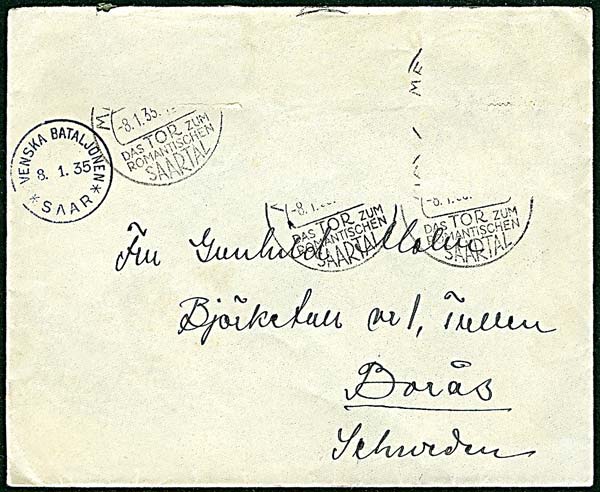 VENSKA BATALJONEN
8. 1. 35
* SAAR *
M
-8.1.35.
DAS TOR ZUM
ROMANTISCHEN
SAARTAL
ME
-8.1.
DAS TOR ZUM
ROMANTISCHEN
SAARTAL
-8.1.
DAS TOR ZUM
ROMANTISCHEN
SAARTAL
Fru Gunhild
Björketun nr 1,
Borås
Schweden